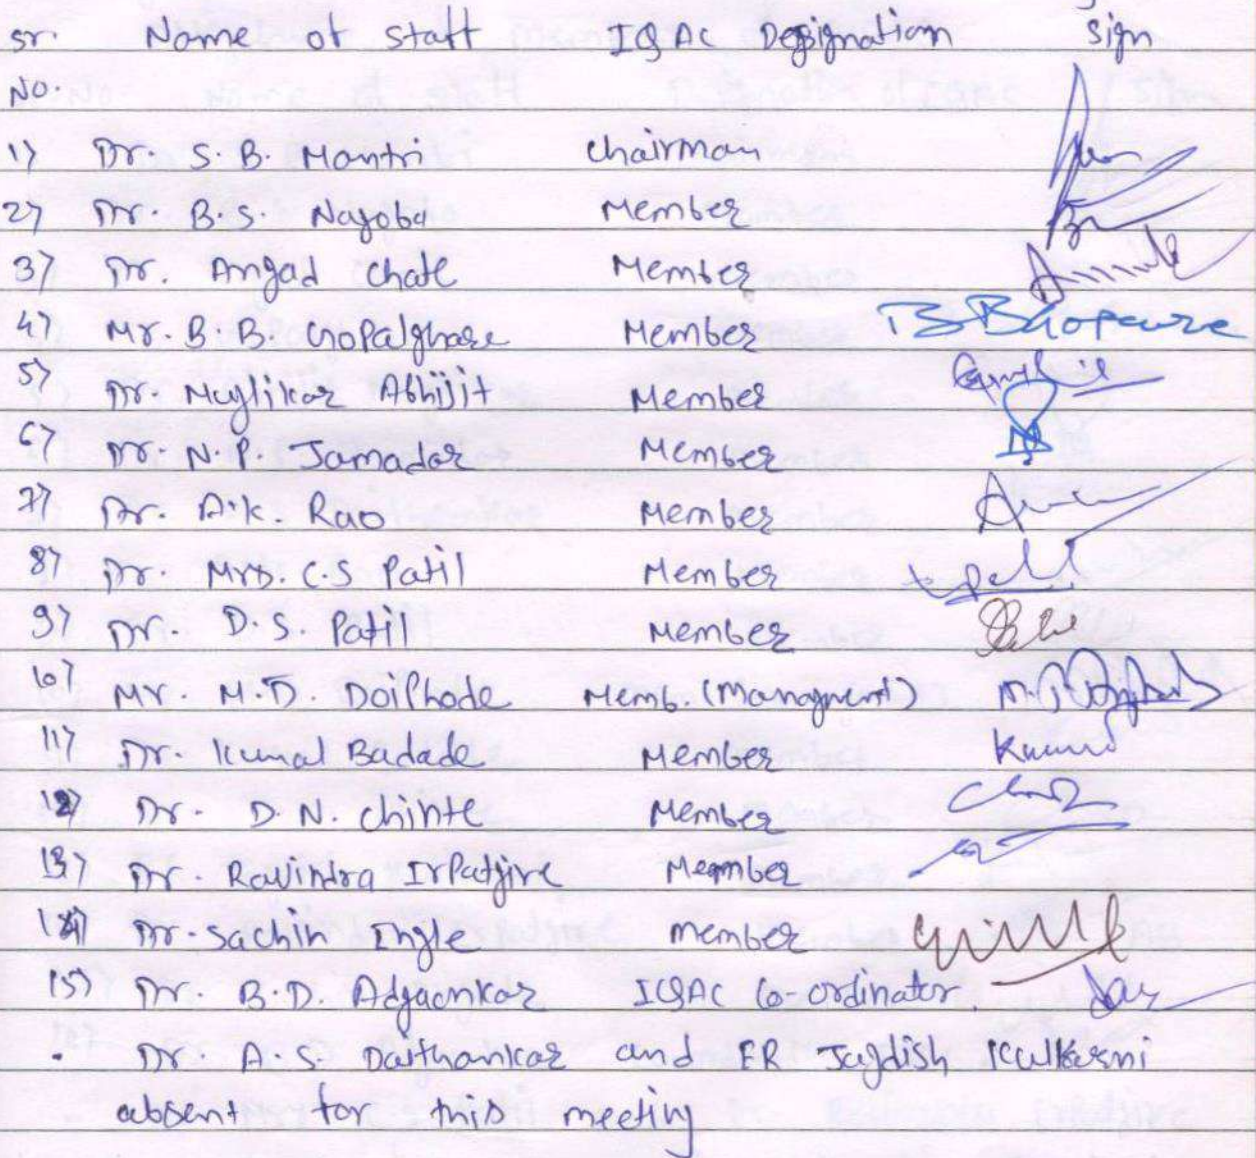 Sr. Name of Staff IQAC Designation Sign
No.
1) Dr. S. B. Mantri Chairman
2) Dr. B.S. Nagoba Member
3) Dr. Angad Chate Member
4) Mr. B. B. Gopalghare Member B B Gopalghare
5) Dr. Muglikar Abhijit Member
6) Dr. N.P. Jamadar Member
7) Dr. A.K. Rao Member
8) Dr. Mrs. C.S Patil Member
9) Dr. D.S. Patil Member
10) Mr. M.D. Doiphode Memb. (Managment)
11) Dr. Kunal Badade Member
12) Dr. D.N. Chinte Member
13) Dr. Ravindra Irpatgire Member
14) Dr. Sachin Ingle Member
15) Dr. B.D. Adgaonkar IQAC Co-ordinator
. Dr. A.S. Daithankar and ER Jagdish Kulkarni
absent for this meeting